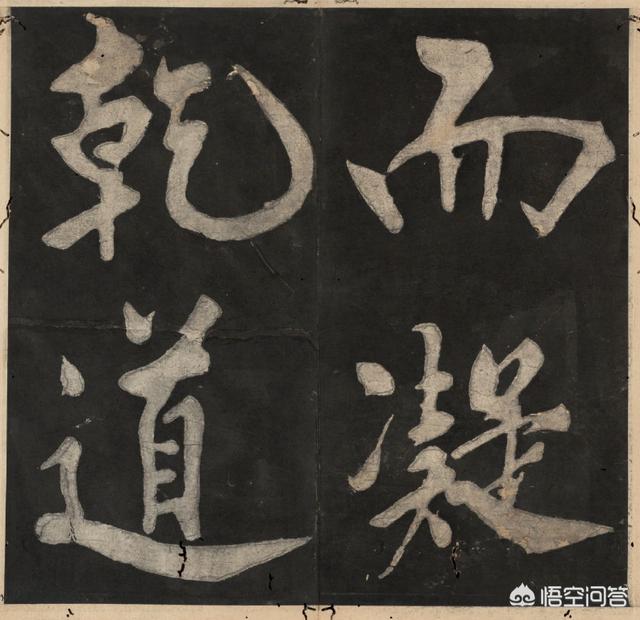 而凝
乾道
悟空问答